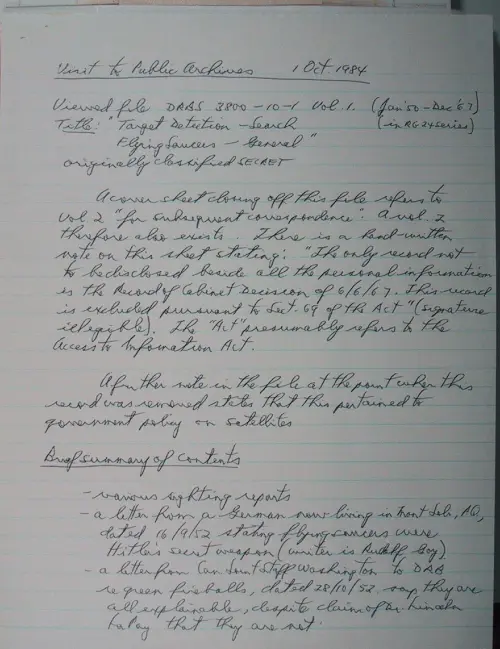 Visit to Public Archives 1 Oct. 1984
Viewed file DRBS 3800-10-1 Vol. 1. (Jan '50 - Dec '67)
Title: "Target Detection - Search (in RG24 series)
Flying Saucers - General"
originally classified SECRET
A cover sheet closing off this file refers to
Vol. 2 "for subsequent correspondence". A vol. 2
therefore also exists. There is a hand-written
note on this sheet stating: "The only record not
to be disclosed beside all the personal information
is the Record of Cabinet Decision of 6/6/67. This record
is excluded pursuant to Sect. 69 of the Act" (signature
illegible). The "Act" presumably refers to the
Access to Information Act.
A further note in the file at the point when this
record was removed states that this pertained to
government policy on satellites
Brief summary of contents
- various sighting reports
- a letter from a German now living in
dated 16/9/52 stating flying saucers were
Hitler's secret weapon (writer is Rudolf
- a letter from Can Joint Staff Washington to DRB
re green fireballs, dated 28/10/52 says they are
all explainable, despite claim of Dr. Lincoln
LaPaz that they are not.